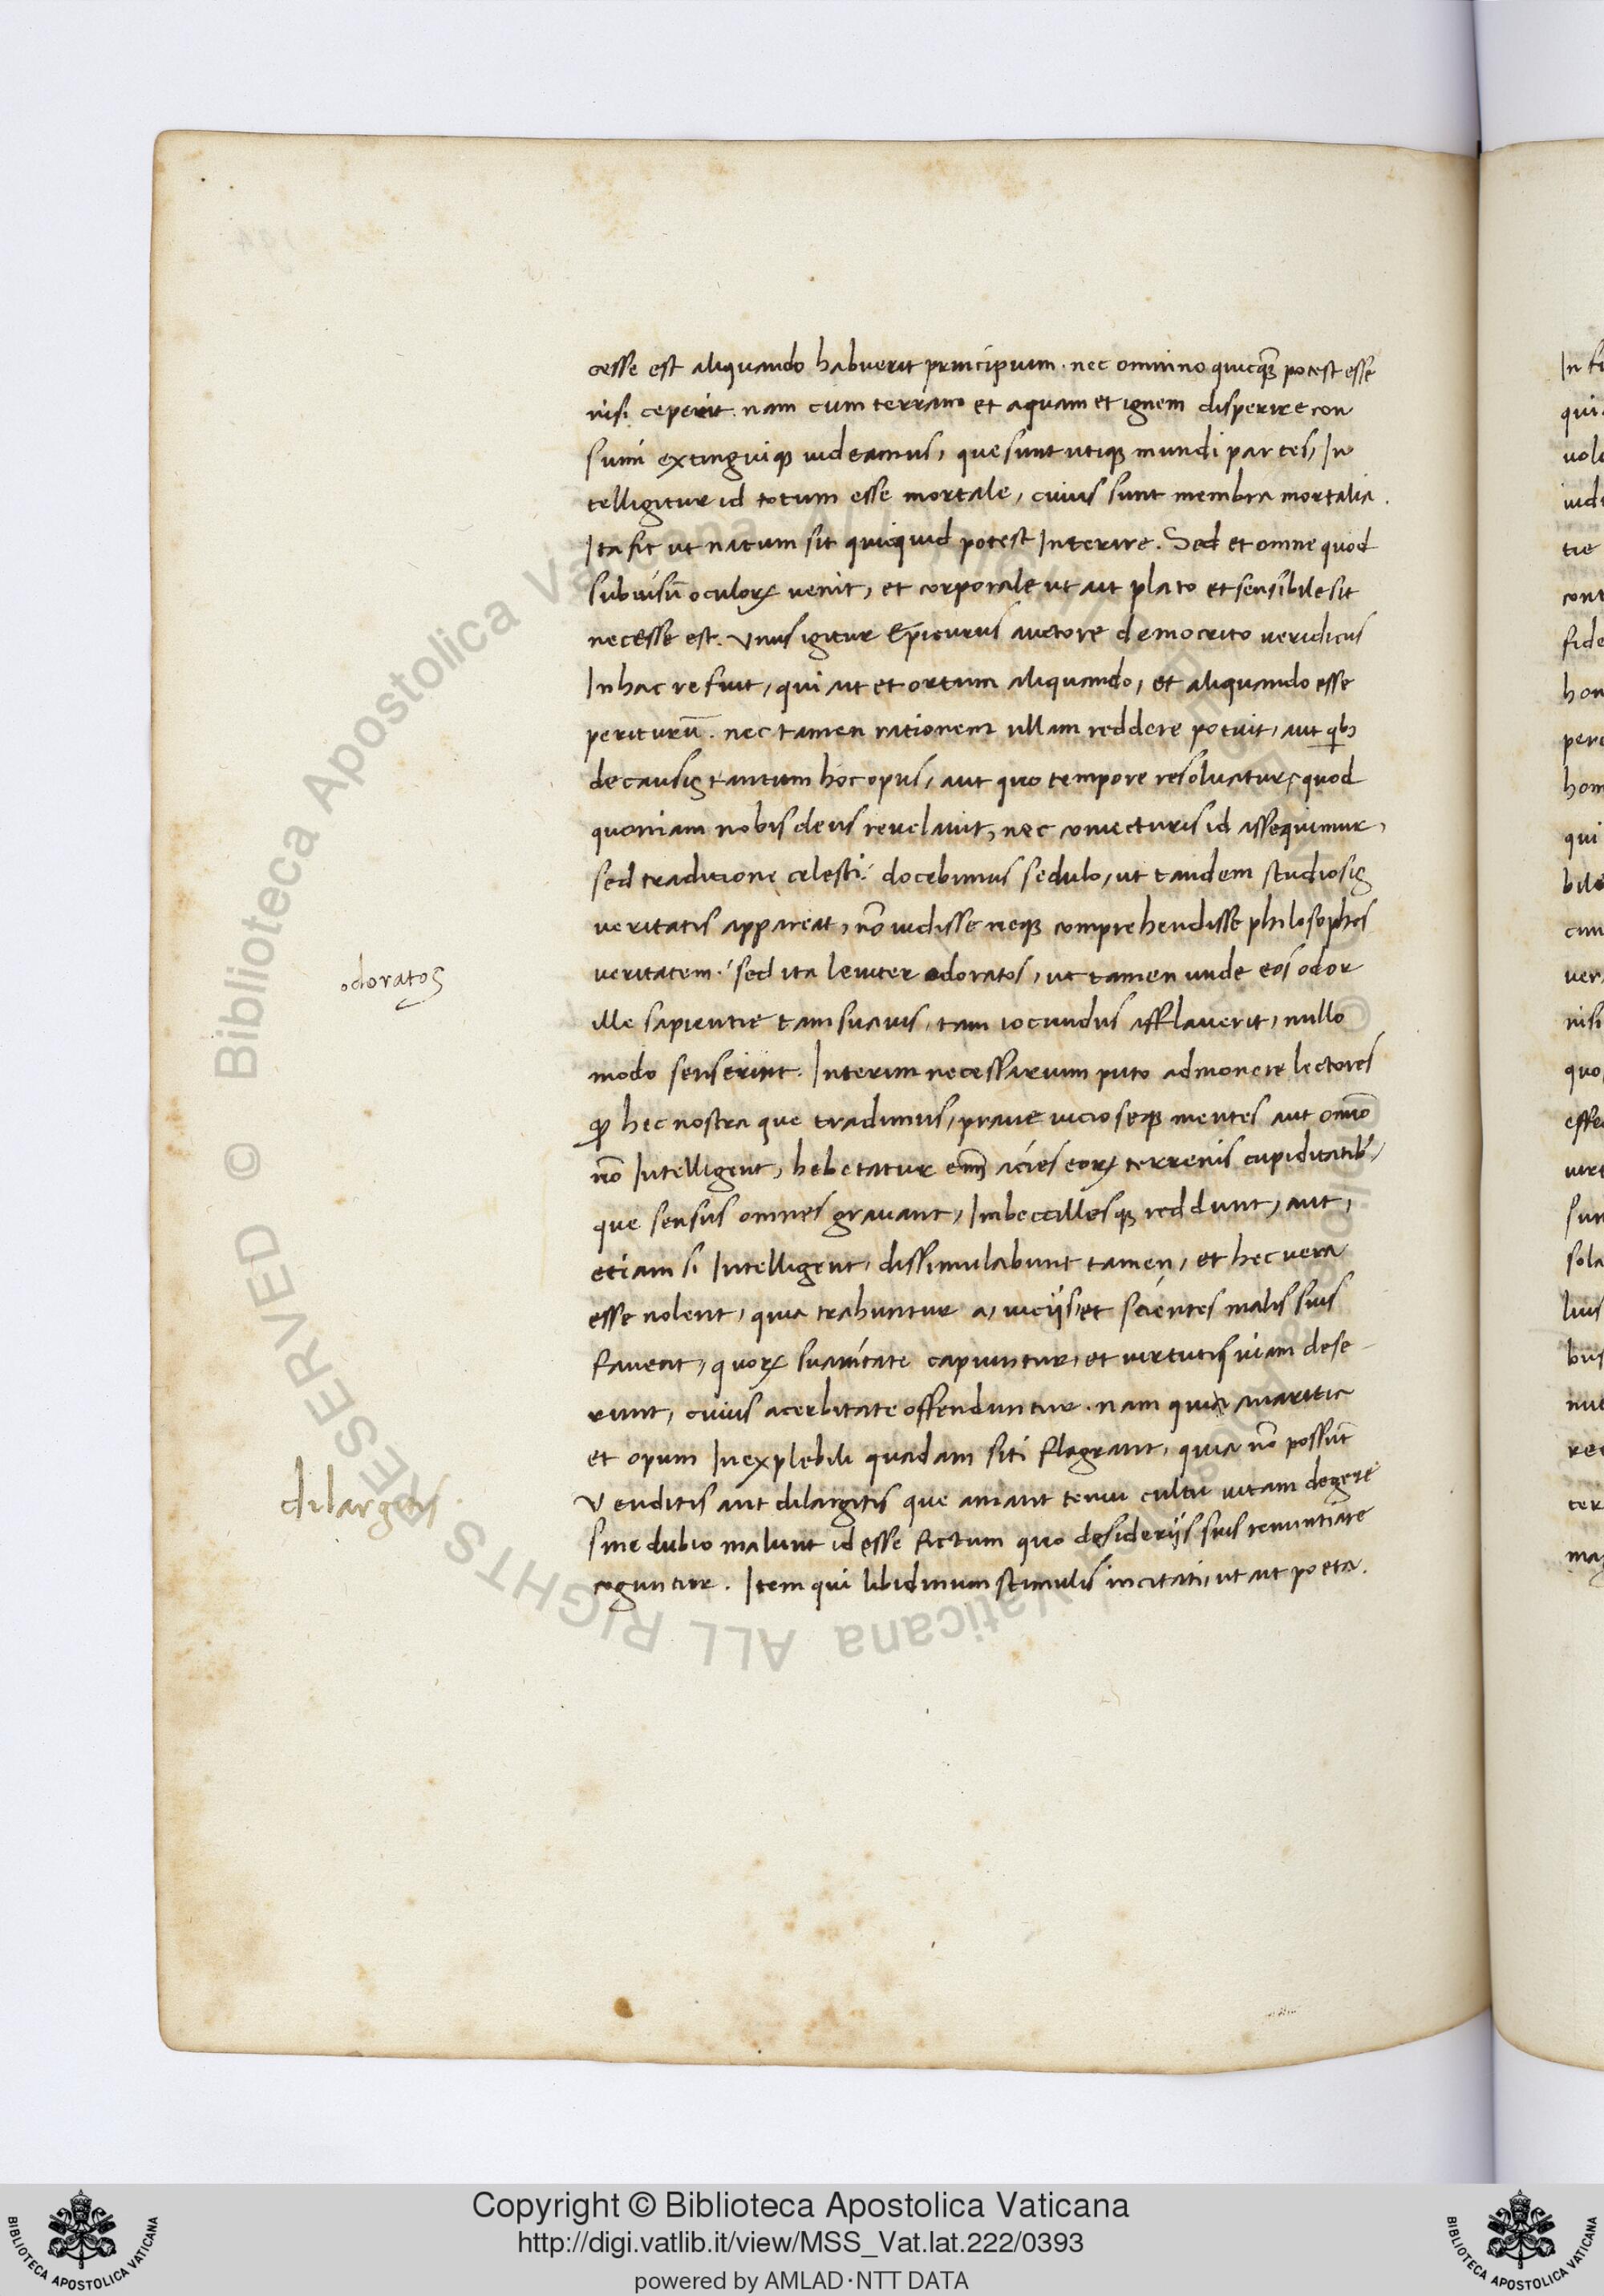 cesse est aliquando habuerit principium. nec omnino quicq̃ potest esse
nisi ceperit. nam cum terram et aquam et ignem disperire con
sumi extinguiq; uideamus, que sunt utiq; mundi partes, In
telligitur id totum esse mortale, cuius sunt membra mortalia.
Ita fit ut natum sit quicquid potest Interire. Sed et omne quod
sub uisũ oculorꝝ uenit, et corporale ut ait plato et sensibile sit
necesse est. Vnus igitur Epicurus auctore democrito ueridicus
In hac re fuit, qui ait et ortum aliquando, et aliquando esse
periturũ. nec tamen rationem ullam reddere potuit, aut qͥbꝫ
de causis tantum hoc opus, aut quo tempore resoluatur, quod
quoniam nobis deus reuelauit, nec coniecturis id assequimur,
sed traditione celesti. docebimus sedulo, ut tandem studiosis
ueritatis appareat, nõ uidisse neq; comprehendisse philosophos
ueritatem. sed ita leuiter odoratos, ut tamen unde eos odor
odoratos
ille sapientie tam suauis, tam iocundus afflauerit, nullo
modo senserint. Interim necessarium puto admonere lectores
ꝙ hec nostra que tradimus, praue uicioseq; mentes aut omĩo
nõ Intelligent, hebetatur em̃ acies eorꝝ terrenis cupiditatib;,
que sensus omnes grauant, Imbecillesq; reddunt, aut,
etiam si Intelligent, dissimulabunt tamen, et hec uera
esse nolent, quia trahuntur a, uicijs, et scientes malis suis
fauent, quorꝝ suauitate capiuntur, et uirtutis uiam dese
runt, cuius acerbitate offenduntur. nam quia auaritie
et opum Inexplebili quadam siti flagrant, quia nõ possũt
Venditis aut dilargitis que amant tenui cultu uitam degere
dilargitis
sine dubio malunt id esse fictum quo desiderijs suis renuntiare
coguntur. Item qui libidinum stimulis incitati, ut ait poeta.
Copyright © Biblioteca Apostolica Vaticana
http://digi.vatlib.it/view/MSS_Vat.lat.222/0393
powered by AMLAD·NTT DATA
BIBLIOTECA APOSTOLICA VATICANA
BIBLIOTECA APOSTOLICA VATICANA